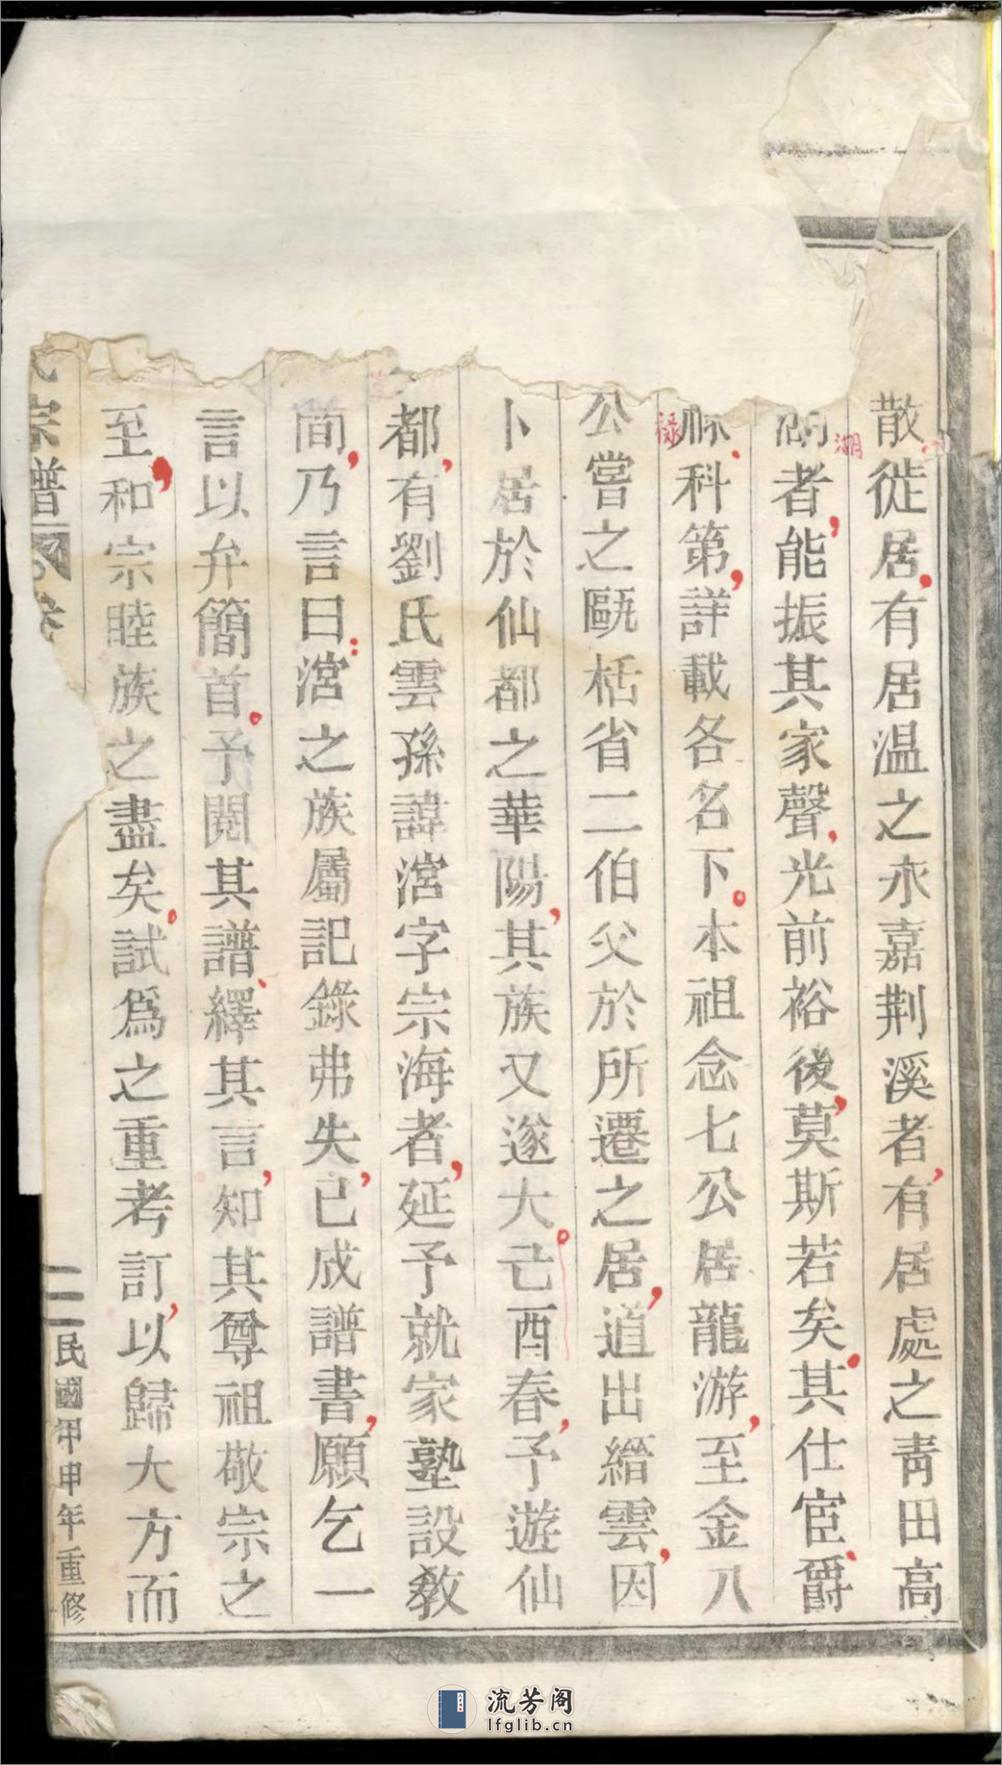 散徙居，有居温之永嘉荆溪者，有居處之青田高
湖者，能振其家聲，光前裕後，莫斯若矣。其仕宦、爵
禄、科第，詳載各名下。本祖念七公居龍游，至金八
公嘗之甌栝省二伯父於所遷之居，道出縉雲，因
卜居於仙都之華陽，其族又遂大。己酉春，予遊仙
都，有劉氏雲孫諱㴏字宗海者，延予就家塾設教
間，乃言曰：㴏之族屬記錄弗失，已成譜書，願乞一
言以弁簡首。予閱其譜、繹其言，知其尊祖敬宗之
至，和宗睦族之盡矣。試爲之重考訂，以歸大方而
氏宗譜
卷
二
民國甲申年重修
流芳阁
lfglib.cn